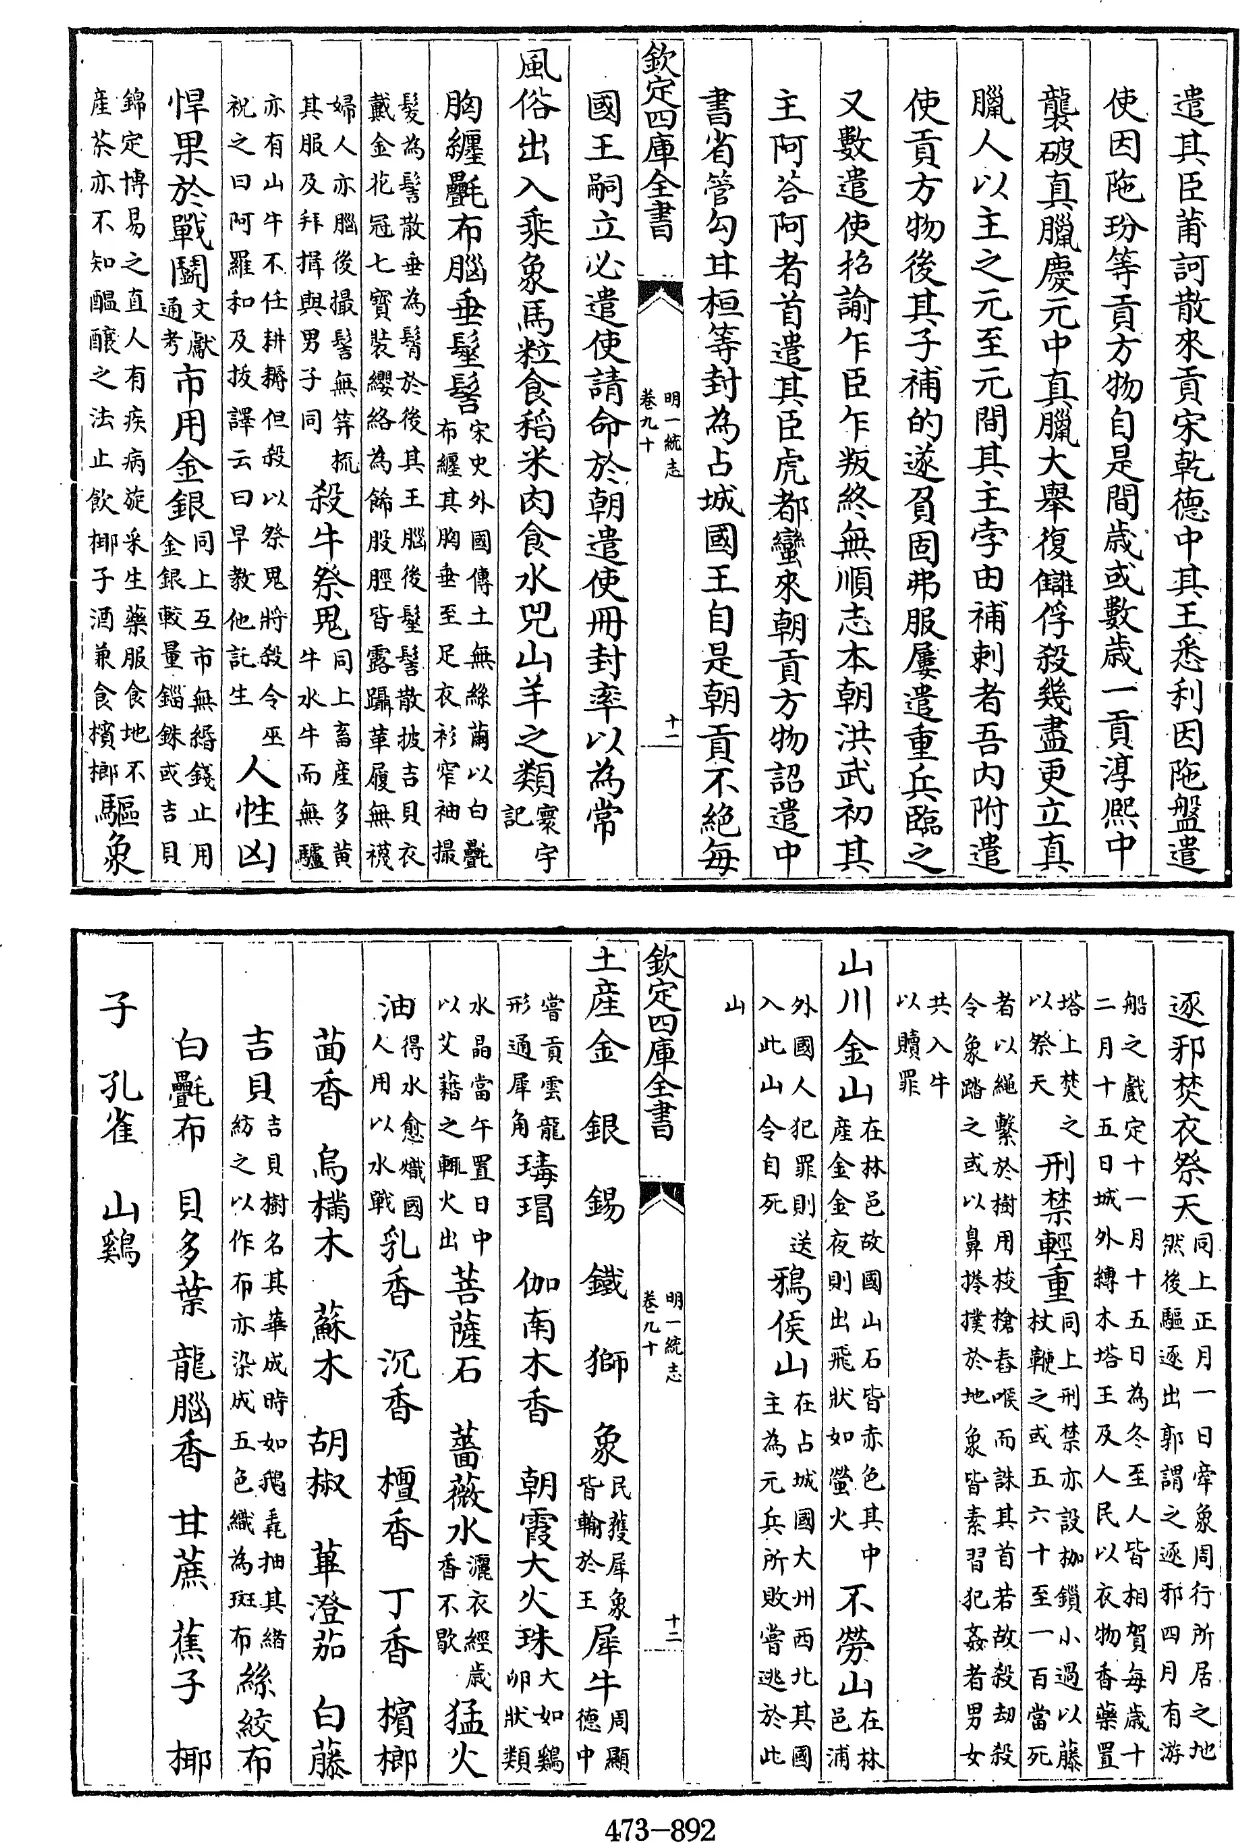 遣其臣莆訶散來貢宋乾德中其王悉利因陁盤遣
使因陁玢等貢方物自是間歳或數歳一貢淳熙中
襲破真臘慶元中真臘大舉復讎俘殺幾盡更立真
臘人以主之元至元間其主孛由補剌者吾内附遣
使貢方物後其子補的遂負固弗服屢遣重兵臨之
又數遣使招諭乍臣乍叛終無順志本朝洪武初其
主阿荅阿者首遣其臣虎都蠻來朝貢方物詔遣中
書省管勾甘桓等封為占城國王自是朝貢不絶每
欽定四庫全書
明一統志
卷九十
十一
國王嗣立必遣使請命於朝遣使冊封率以為常
風俗出入乗象馬粒食稻米肉食水兕山羊之類寰宇
記
胸纒㲲布腦垂髽髻宋史外國傳土無絲繭以白㲲
布纒其胸垂至足衣衫窄袖撮
髮為髻散垂為鬌於後其王腦後髽髻散披吉貝衣
戴金花冠七寳裝纓絡為餙股脛皆露躡革履無襪
婦人亦腦後撮髻無笄梳
其服及拜揖與男子同
殺牛祭鬼同上畜産多黄
牛水牛而無驢
亦有山牛不任耕耨但殺以祭鬼將殺令巫
祝之曰阿羅和及㧞譯云曰早教他託生
人性凶
悍果於戰鬭文獻
通考
市用金銀同上互市無緡錢止用
金銀較量錙銖或吉貝
錦定博易之直人有疾病旋采生藥服食地不
産茶亦不知醖釀之法止飲椰子酒兼食檳榔
驅象
逐邪焚衣祭天同上正月一日牽象周行所居之地
然後驅逐出郭謂之逐邪四月有游
船之戲定十一月十五日為冬至人皆相賀每歳十
二月十五日城外縛木塔王及人民以衣物香藥置
塔上焚之
以祭天
刑禁輕重同上刑禁亦設枷鎖小過以藤
杖鞭之或五六十至一百當死
者以繩繫於樹用梭槍舂喉而誅其首若故殺劫殺
令象踏之或以鼻捲撲於地象皆素習犯姦者男女
共入牛
以贖罪
山川金山在林邑故國山石皆赤色其中
産金金夜則出飛狀如螢火
不勞山在林
邑浦
外國人犯罪則送
入此山令自死
鴉侯山在占城國大州西北其國
主為元兵所敗嘗逃於此
山
欽定四庫全書
明一統志
卷九十
十二
土産金 銀 錫 鐵 獅 象民獲犀象
皆輸於王
犀牛周顯
德中
嘗貢雲龍
形通犀角
瑇瑁 伽南木香 朝霞大火珠大如鷄
卵狀類
水晶當午置日中
以艾藉之輒火出
菩薩石 薔薇水灑衣經歳
香不歇
猛火
油得水愈熾國
人用以水戰
乳香 沉香 檀香 丁香 檳榔
茴香 烏樠木 蘇木 胡椒 蓽澄茄 白藤
吉貝吉貝樹名其華成時如鵝毳抽其緒
紡之以作布亦染成五色織為斑布
絲絞布
白㲲布 貝多葉 龍腦香 甘蔗 蕉子 椰
子 孔雀 山鷄
473-892